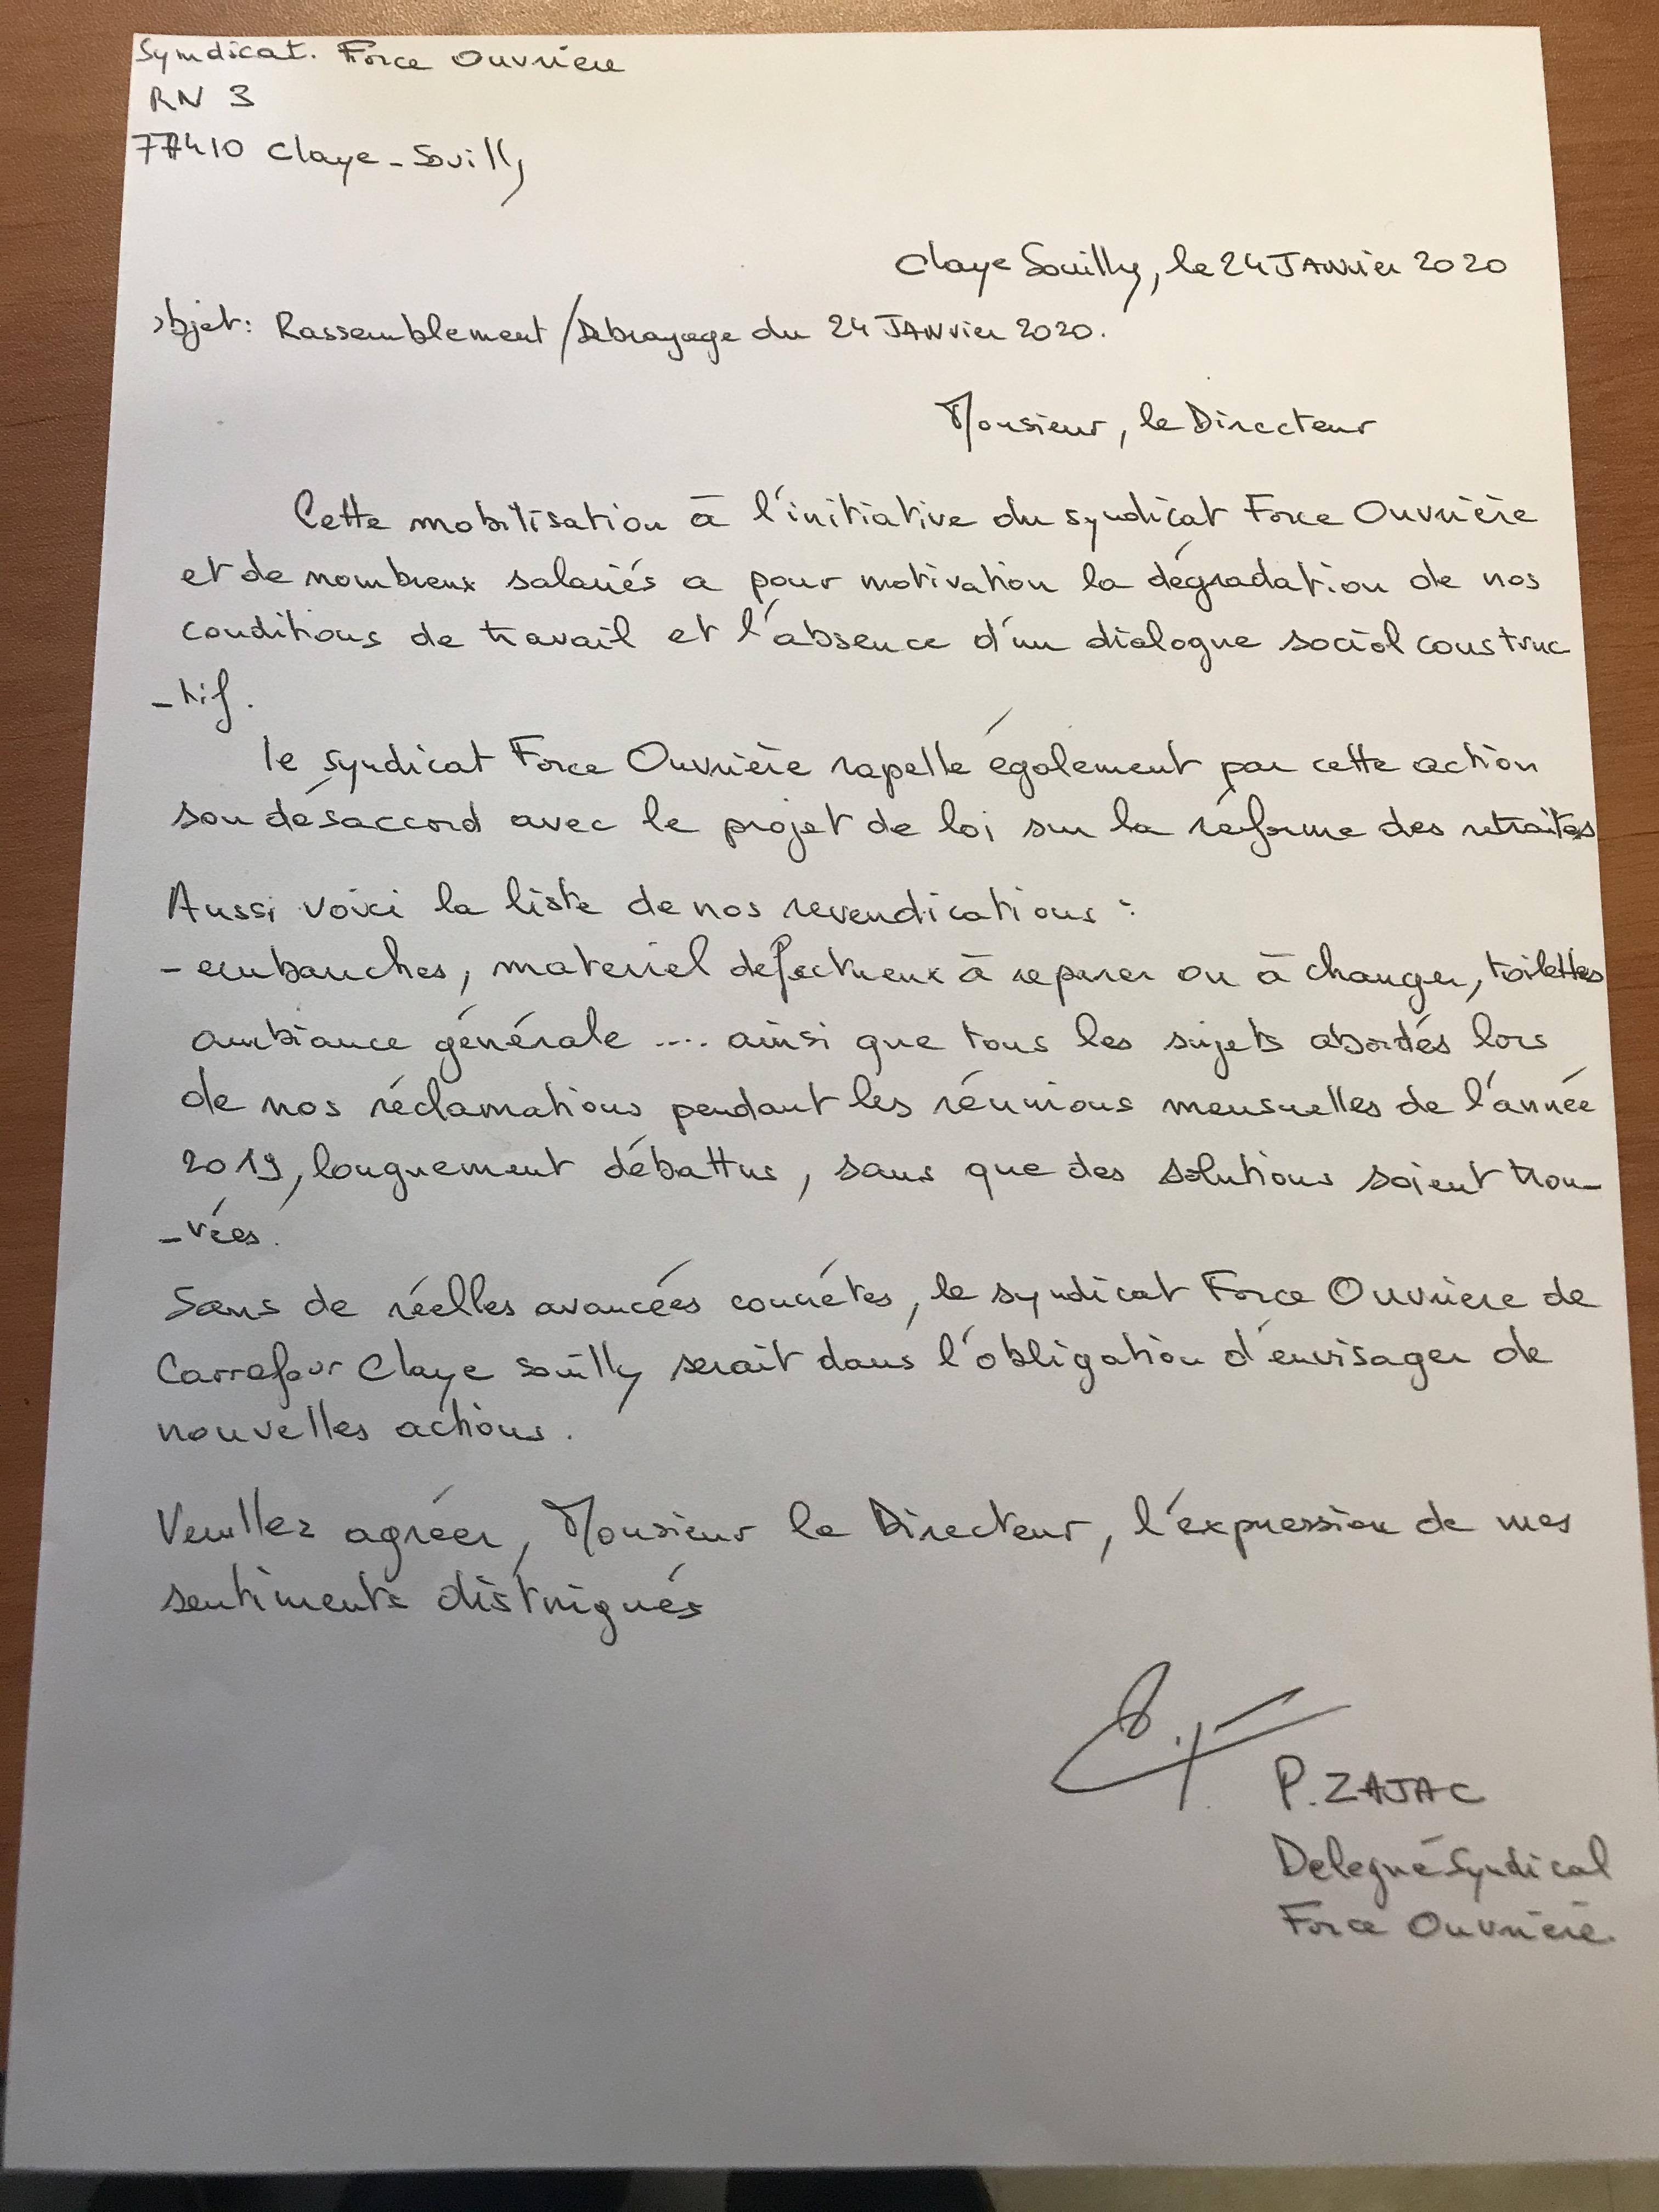 Syndicat. Force Ouvrière
RN 3
77410 Claye-Souilly
Claye Souilly, le 24 JANvier 2020
objet: Rassemblement/Debrayage du 24 JANvier 2020.
Monsieur, le Directeur
Cette mobilisation à l'initiative du syndicat Force Ouvrière
et de nombreux salariés a pour motivation la dégradation de nos
conditions de travail et l'absence d'un dialogue social construc
-tif.
le syndicat Force Ouvrière rapelle également par cette action
son désaccord avec le projet de loi sur la réforme des retraites
Aussi voici la liste de nos revendications :
- embauches, materiel defectueux à reparer ou à changer, toilettes
ambiance générale .... ainsi que tous les sujets abordés lors
de nos réclamations pendant les réunions mensuelles de l'année
2019, longuement débattus, sans que des solutions soient trou-
-vées.
Sans de réelles avancées concrétes, le syndicat Force Ouvriere de
Carrefour Claye souilly serait dans l'obligation d'envisager de
nouvelles actions.
Veuillez agréer, Monsieur le Directeur, l'expression de mes
sentiments distnigués
P. ZAJAC
Delegué Syndical
Force Ouvrière.